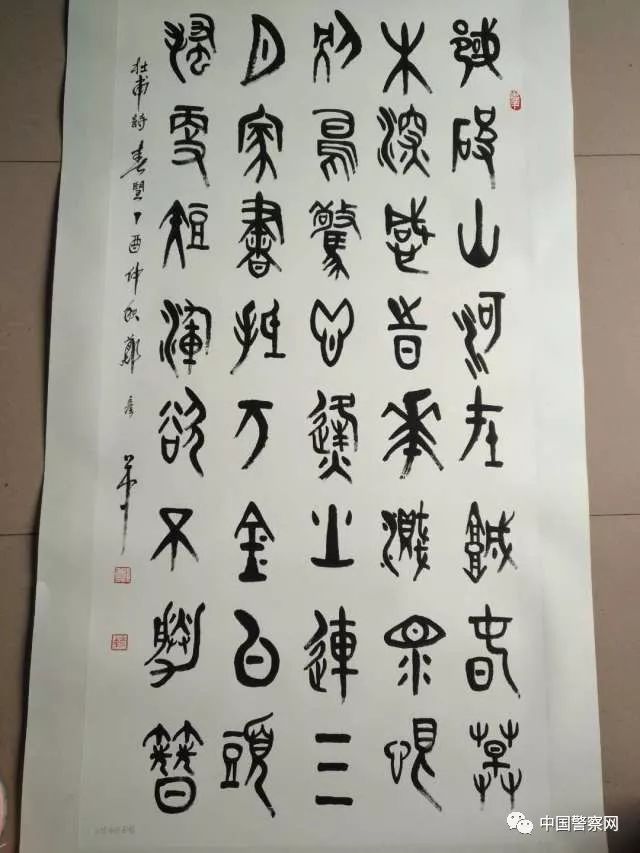 國破山河在城春草
木深感時花濺淚恨
別鳥驚心烽火連三
月家書抵万金白頭
搔更短渾欲不勝簪
杜甫詩春望丁酉仲秋
中国警察网